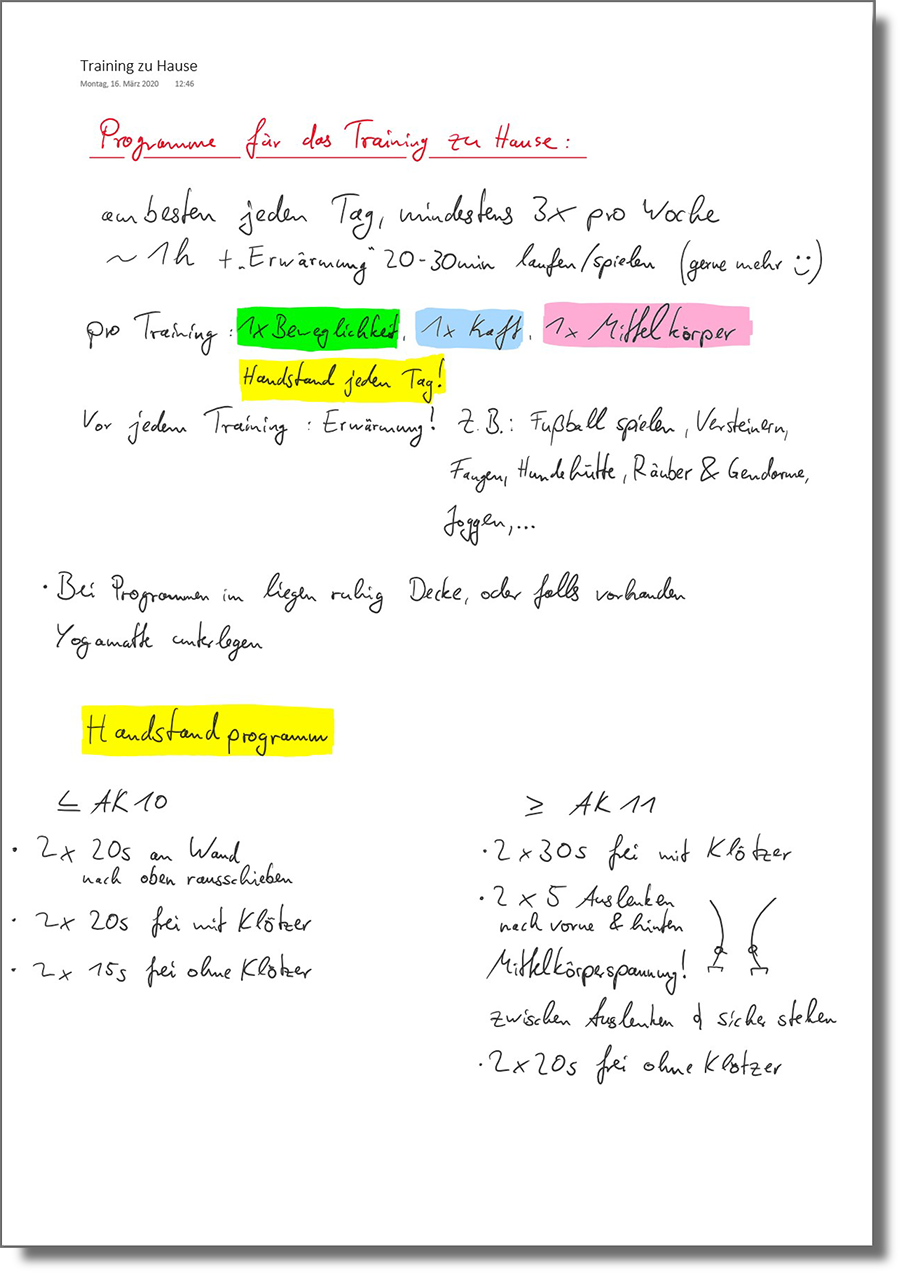 Training zu Hause
Montag, 16. März 2020 12:46
Programme für das Training zu Hause:
am besten jeden Tag, mindestens 3x pro Woche
~ 1h + „Erwärmung" 20-30min laufen/spielen (gerne mehr :))
pro Training: 1x Beweglichkeit, 1x Kraft, 1x Mittelkörper
Handstand jeden Tag!
Vor jedem Training: Erwärmung! Z.B.: Fußball spielen, Versteinern,
Fangen, Hundehütte, Räuber & Gendarme,
Joggen,...
· Bei Programmen im liegen ruhig Decke, oder falls vorhanden
Yogamatte unterlegen
Handstandprogramm
≤ AK 10
· 2x 20s an Wand
nach oben rausschieben
· 2x 20s frei mit Klötzer
· 2x 15s frei ohne Klötzer
≥ AK 11
· 2x30s frei mit Klötzer
· 2x5 Auslenken
nach vorne & hinten
Mittelkörperspannung!
zwischen Auslenken sicher stehen
· 2x20s frei ohne Klötzer